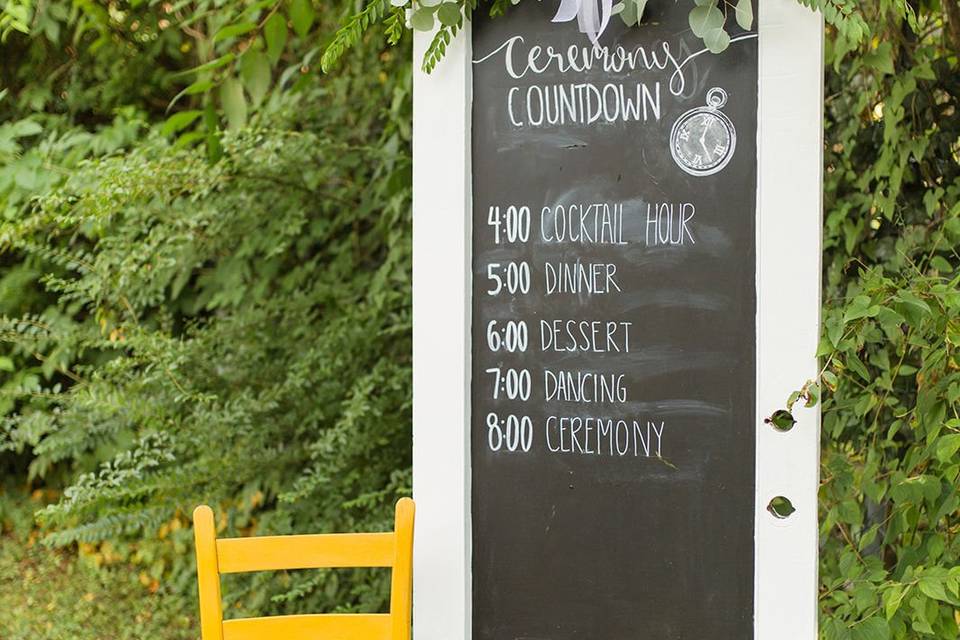 Ceremony
COUNTDOWN
4:00 COCKTAIL HOUR
5:00 DINNER
6:00 DESSERT
7:00 DANCING
8:00 CEREMONY